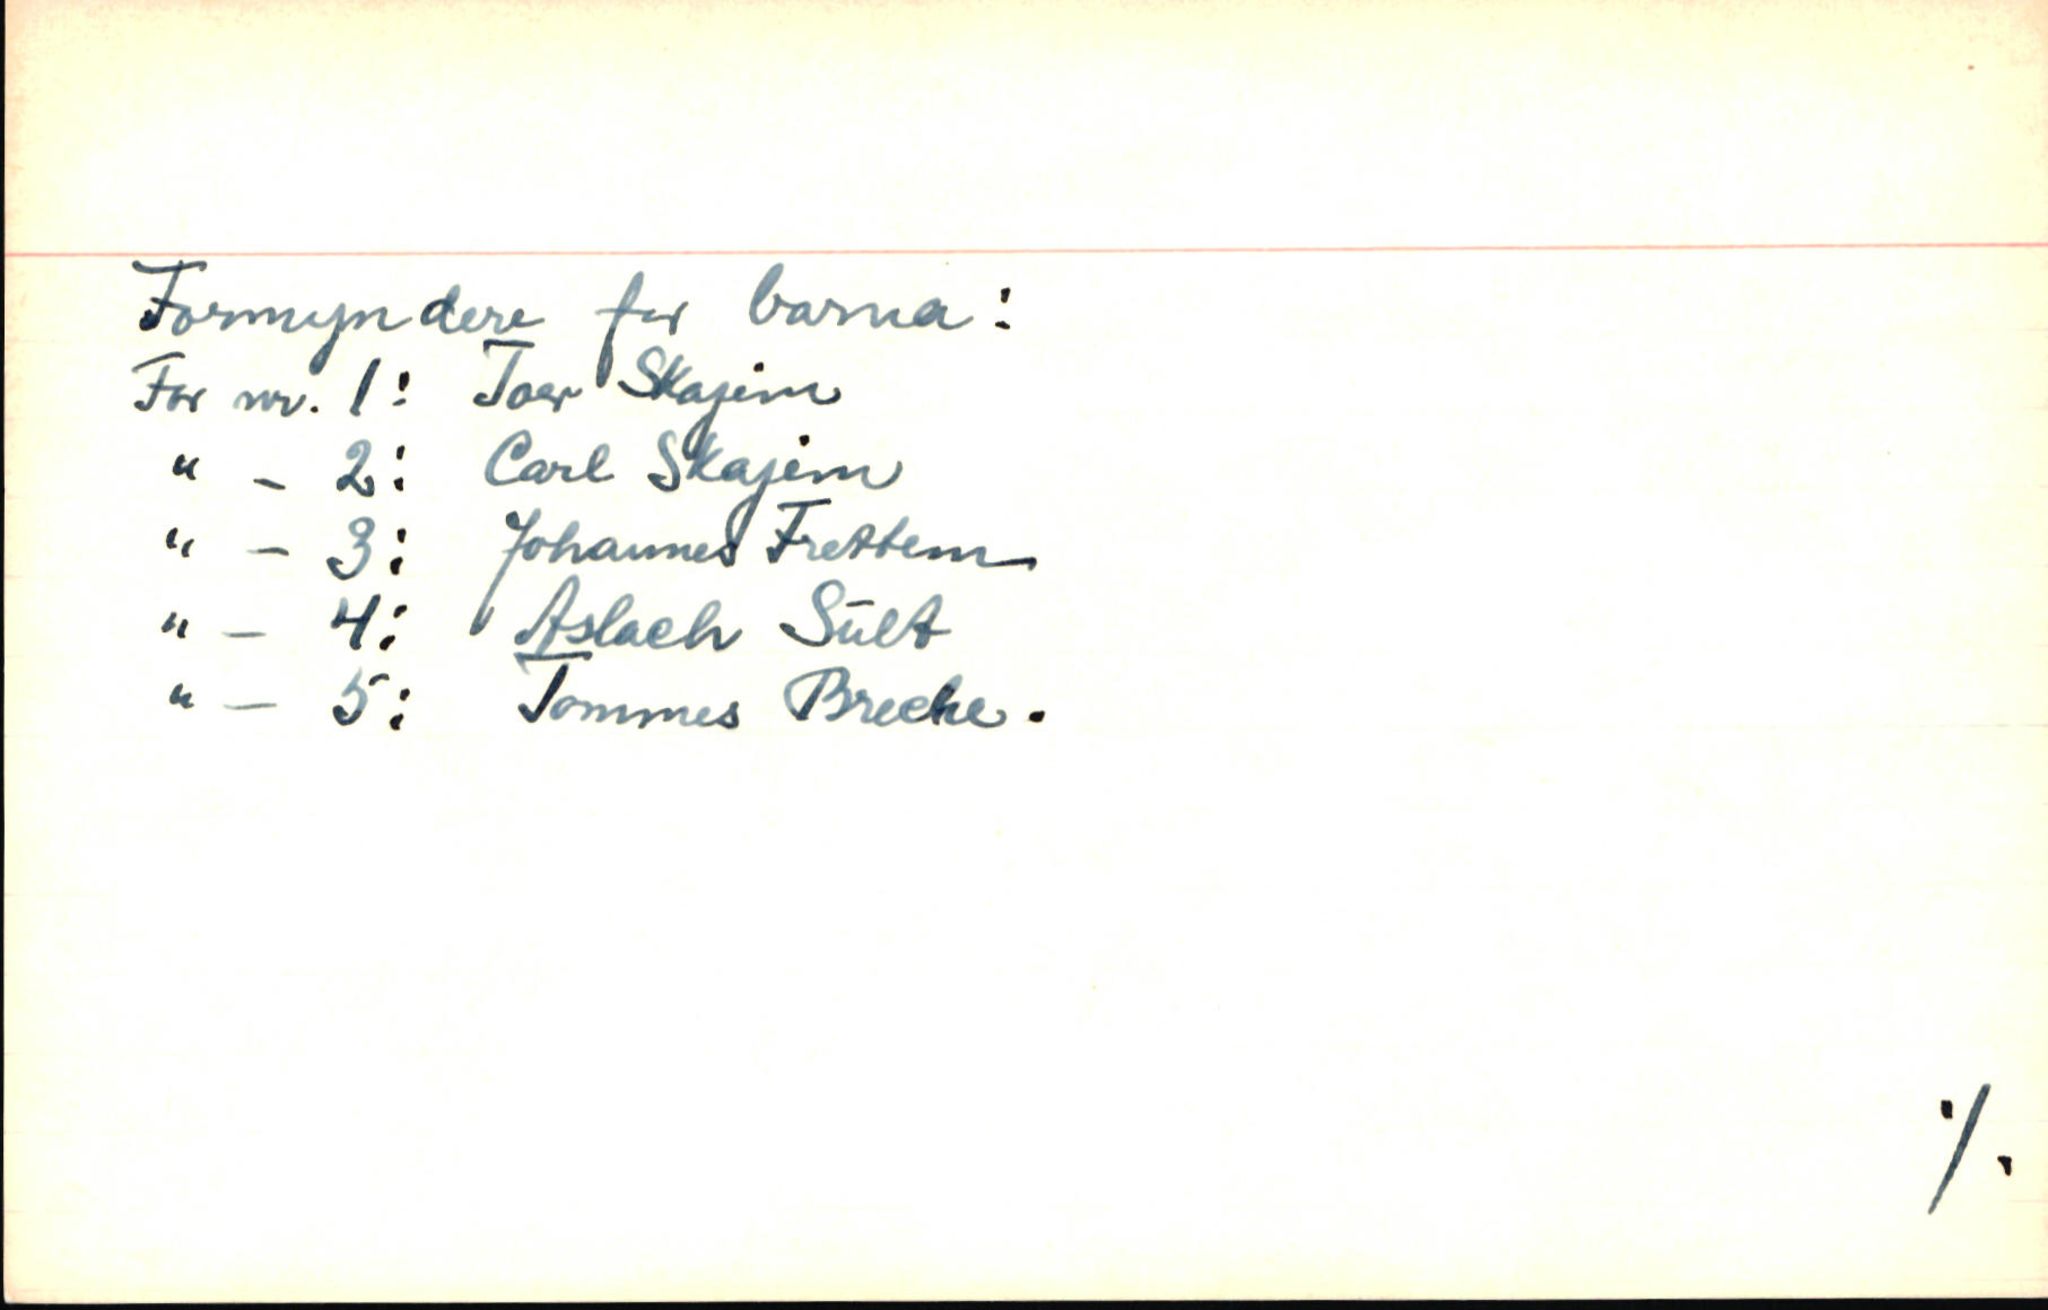 Formyndere for barna:
For nr. 1: Toer Skajem
" - 2: Carl Skajem
" - 3: Johannes Frettem
" - 4: Aslach Sult
" - 5: Tommes Breche.
./.